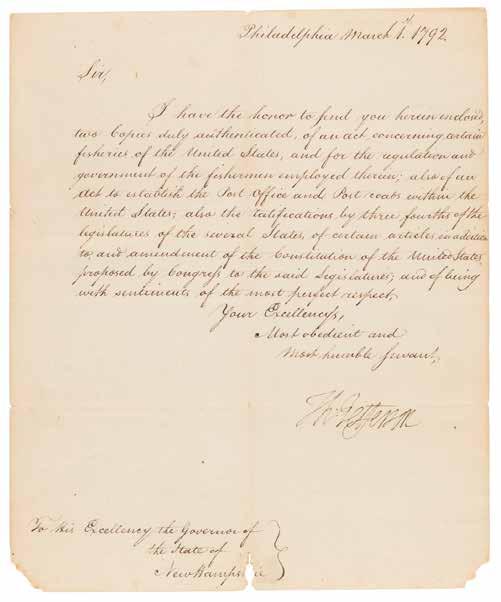 Philadelphia March 1.st 1792
Sir,
I have the honor to find you herein enclosed,
two Copies duly authenticated, of an act concerning certain
fisheries of the United States, and for the regulation and
government of the fishermen employed therein; also of an
Act to establish the Post Office and Post roads within the
United States; also the ratifications by three fourths of the
legislatures of the several States, of certain articles in addition
to and amendment of the Constitution of the United States,
proposed by Congress to the said Legislatures, and of being
with sentiments of the most perfect respect,
Your Excellency's,
Most obedient and
Most humble Servant,
Th: Jefferson
To His Excellency the Governor of
the State of
New Hampshire